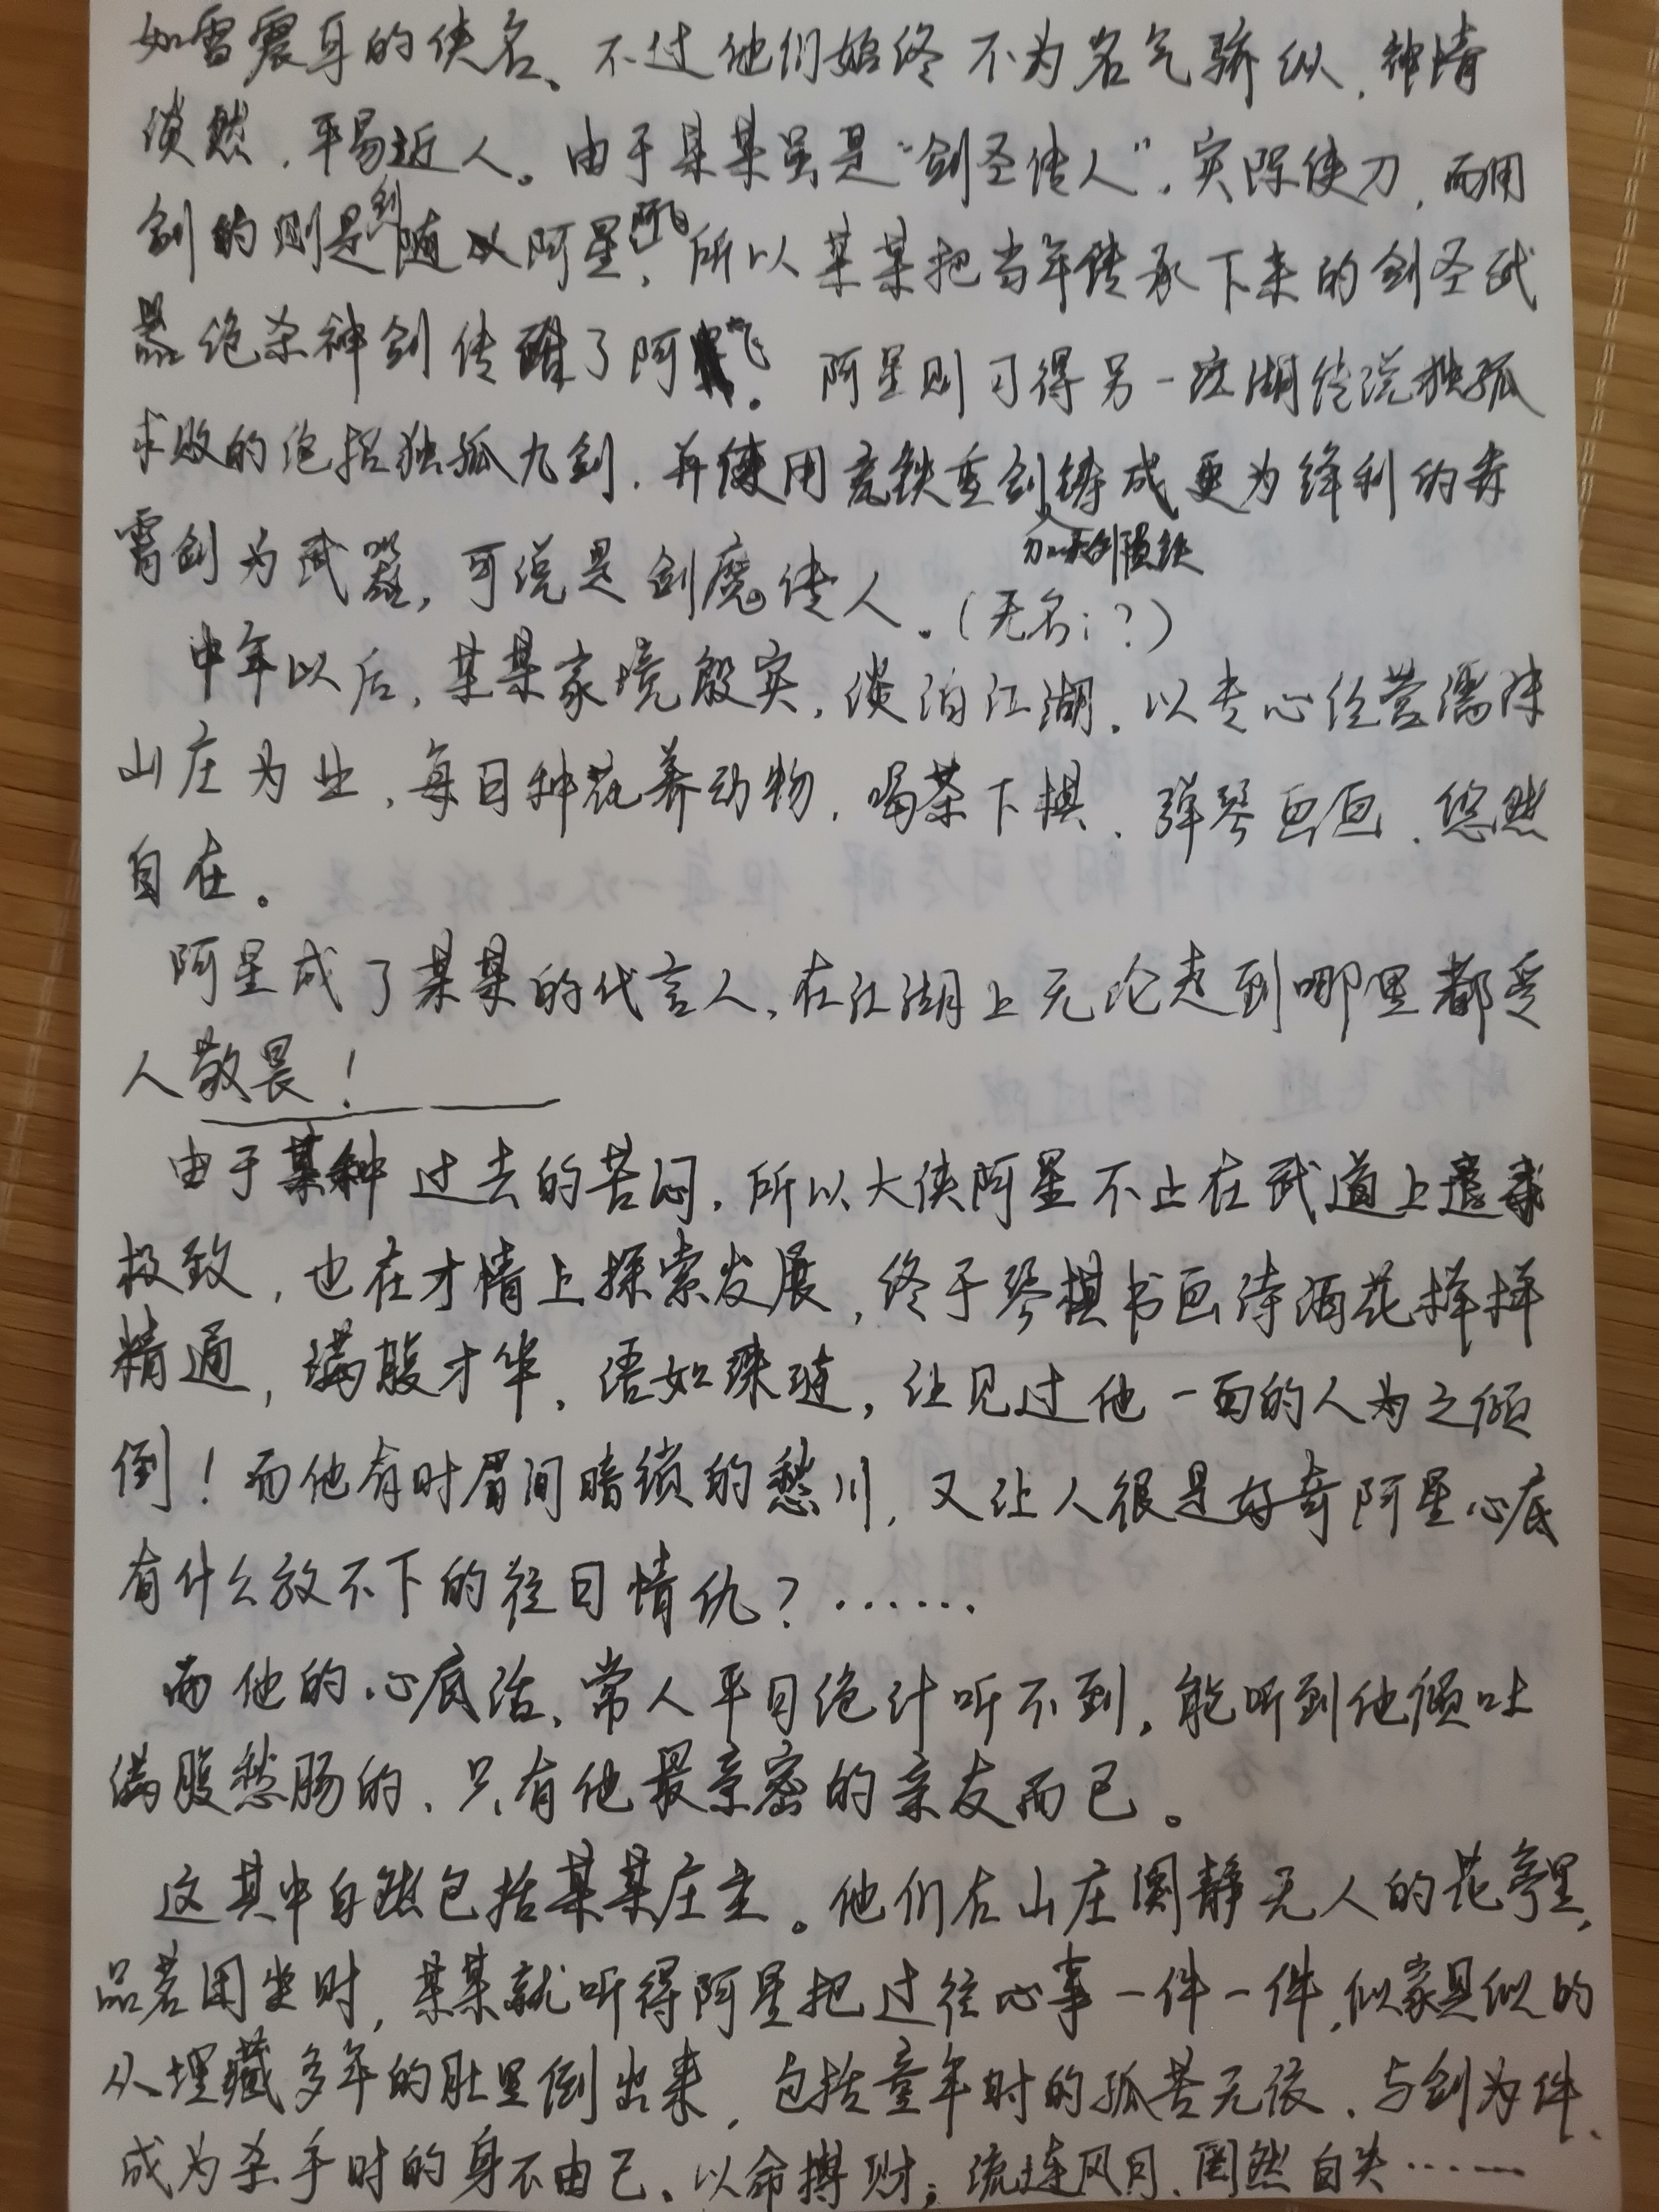 如雷震耳的侠名、不过他们始终不为名气骄纵，神情
淡然，平易近人。由于某某虽是“剑圣传人”，实际使刀，而用
剑的则是剑随从阿星、阿飞，所以某某把当年传承下来的剑圣武
器绝杀神剑传给了阿飞。阿星则习得另一江湖传说独孤
求败的绝招独孤九剑，并使用玄铁重剑铸成更为锋利的青
加入天外陨铁
霄剑为武器，可说是剑魔传人。（无名；？）
中年以后，某某家境殷实，淡泊江湖，以专心经营
山庄为业，每日种花养动物，喝茶下棋、弹琴画画，悠然
自在。
阿星成了某某的代言人，在江湖上无论走到哪里都受
人敬畏！
由于某种过去的苦闷，所以大侠阿星不止在武道上
极致，也在才情上探索发展，终于琴棋书画诗酒花样样
精通，满腹才华，语如珠琏，让见过他一面的人为之倾
倒！而他有时眉间暗锁的愁川，又让人很是好奇阿星心底
有什么放不下的往日情仇？……
而他的心底话，常人平日绝计听不到，能听到他倾吐
满腹愁肠的、只有他最亲密的亲友而已。
这其中自然包括某某庄主。他们在山庄阒静无人的花亭里，
品茗闲坐时，某某就听得阿星把过往心事一件一件，似家具似的
从埋藏多年的肚里倒出来，包括童年时的孤苦无依、与剑为伴、
成为杀手时的身不由己、以命搏财；流连风月、惘然自失……